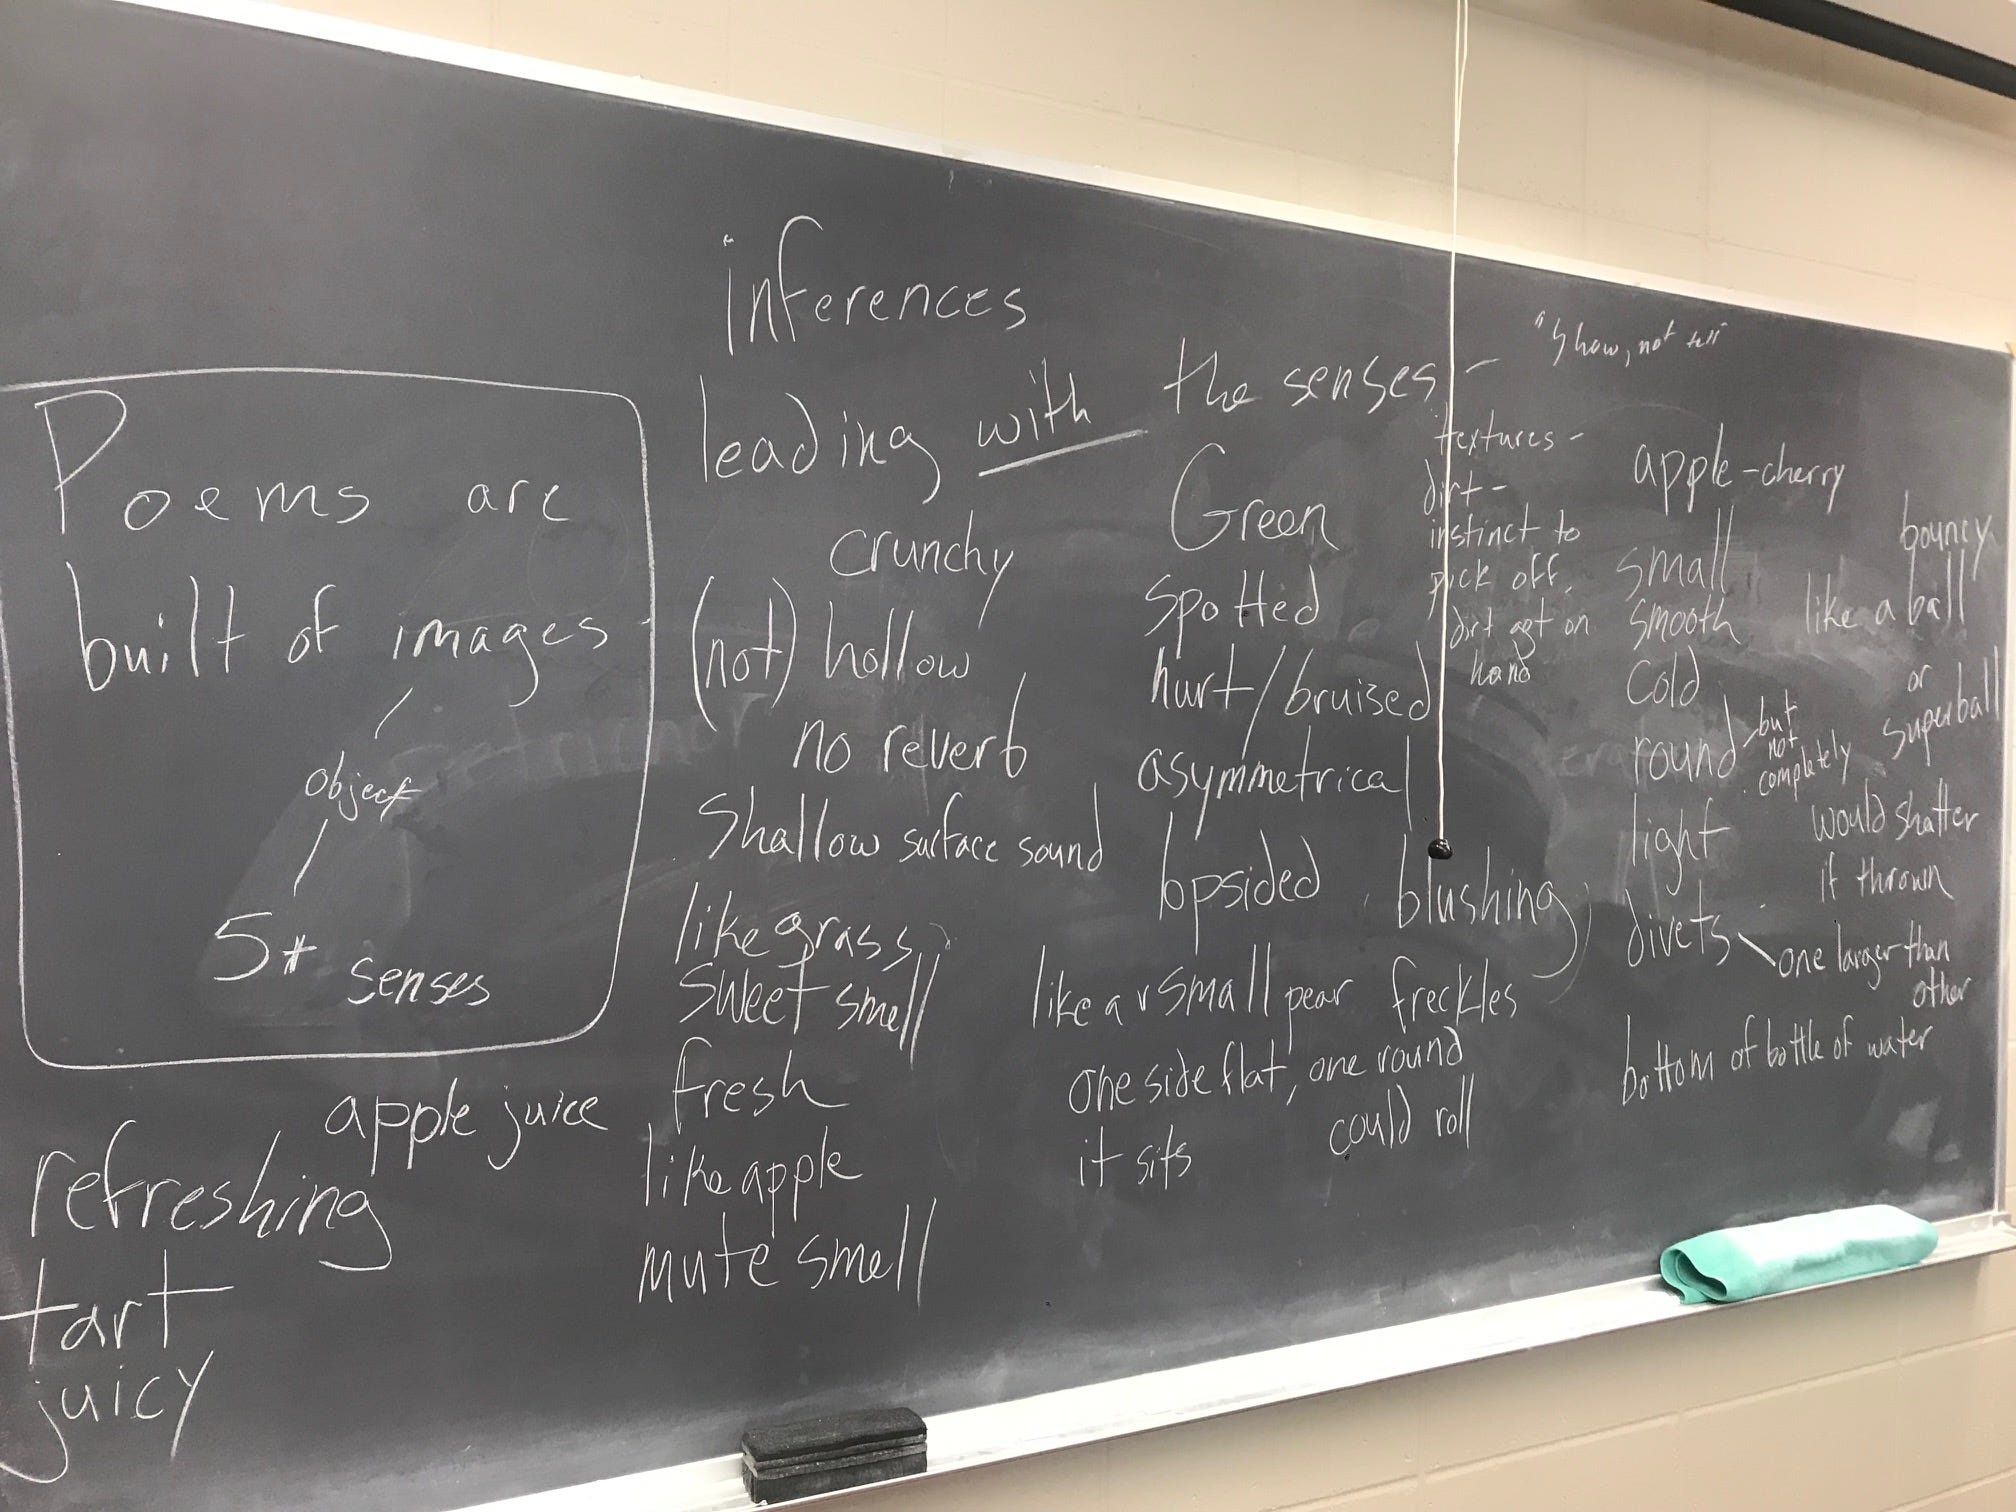 Poems are
built of images
object
5+ senses
apple juice
refreshing
tart
juicy
inferences
leading with the senses -
"Show, not tell"
crunchy
(not) hollow
no reverb
Shallow surface sound
like grass
sweet smell
fresh
like apple
mute smell
Green
Spotted
hurt/bruised
asymmetrical
lopsided
blushing
like a small pear
freckles
one side flat, one round
it sits
could roll
textures -
dirt -
instinct to
pick off,
dirt got on
hand
apple-cherry
small
smooth
cold
round
but
not
completely
light
divets
one larger than
other
bottom of bottle of water
bouncy
like a ball
or
superball
would shatter
if thrown